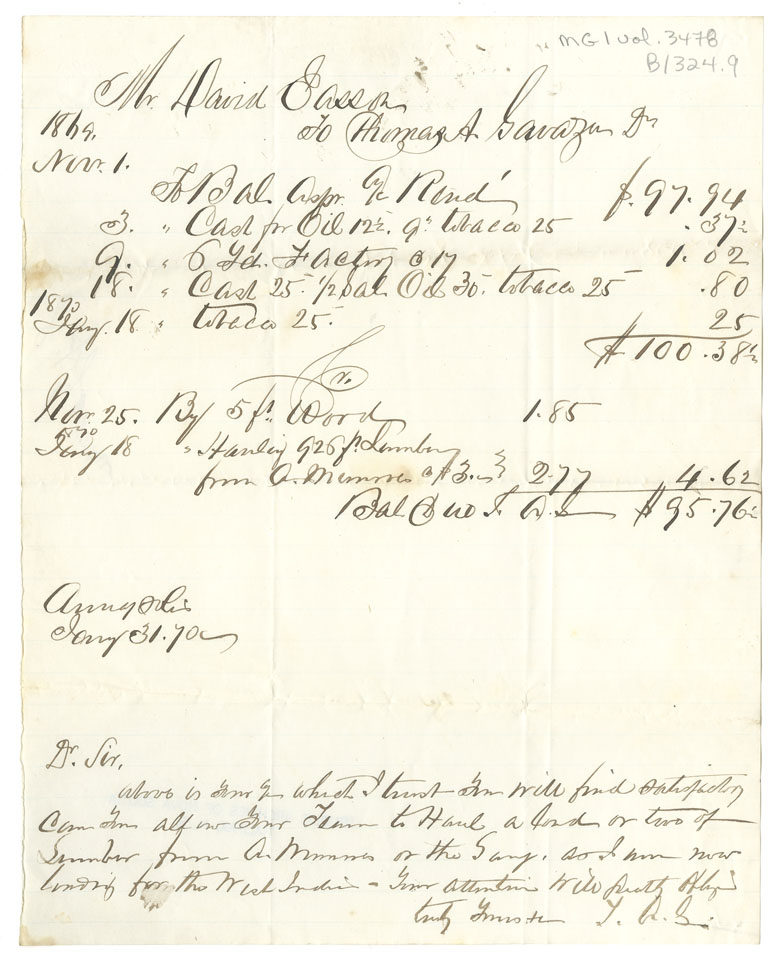 MG 1 vol. 3478
B1324.9
Mr. David Easson
1869. To Thomas A. Gavaza Dr
Nov. 1.
To Bal as pr a/c Rend' $97.94
3. " Cash for Oil 12½. qr tobacco 25 .37½
9. " 6 Yd. Factory @ 17 1.02
18. " Cash 25. 1/2 Gal Oil 30. tobacco 25 .80
1870
Jany. 18 " tobacco 25. 25
$100.38½
Cr.
Nov. 25. By 5 ft. Wood 1.85
1870
Jany 18 " Hauling 926 ft Lumber
from A. @ $3. 2.77 4.62
Bal Due T. A. G $95.76½
Annapolis
Jany 31. 70
Dr. Sir,
above is Your a/c which I trust You will find satisfactory
Can You allow Your Team to Haul a load or two of
Lumber from A. or the Gang. as I am now
loading for the West Indies - Your attention will greatly Oblige
truly Yours T. A. G.